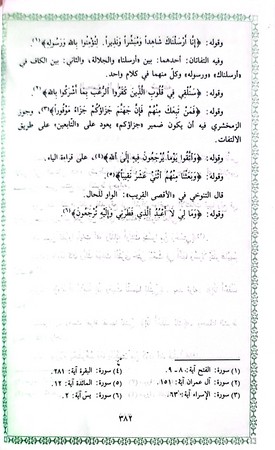 وقوله: ﴿إِنَّا أَرْسَلْنَاكَ شَاهِداً وَمُبَشِّراً وَنَذِيراً. لِتُؤْمِنُوا بِاللهِ وَرَسُولِهِ﴾(١).
وفيه التفاتان: أحدهما: بين «أرسلنا» والجلالة، والثاني: بين الكاف في
«أرسلناك» «ورسوله» وكلٌ منهما في كلام واحد.
وقوله: ﴿سَنُلْقِي فِي قُلُوبِ الَّذِينَ كَفَرُوا الرُّعْبَ بِمَا أَشْرَكُوا بِاللهِ﴾(٢)
وقوله: ﴿فَمَنْ تَبِعَكَ مِنْهُمْ فَإِنَّ جَهَنَّمَ جَزَاؤُكُمْ جَزَاءً مَوْفُوراً﴾(٣)، وجوز
الزمخشري فيه أن يكون ضمير «جزاؤكم» يعود على «التابعين» على طريق
الالتفات.
وقوله: ﴿وَاتَّقُوا يَوْماً يُرْجَعُونَ فِيهِ إِلَى اللهِ﴾(٤)، على قراءة الياء.
وقوله: ﴿وَبَعَثْنَا مِنْهُمُ اثْنَيْ عَشَرَ نَقِيباً﴾(٥).
قال التنوخي في «الأقصى القريب»: الواو للحال.
وقوله: ﴿وَمَا لِيَ لَا أَعْبُدُ الَّذِي فَطَرَنِي وَإِلَيْهِ تُرْجَعُونَ﴾(٦)
(١) سورة: الفتح آية: ٨ - ٩. (٤) سورة: البقرة آية: ٢٨١.
(٢) سورة: آل عمران آية: ١٥١. (٥) سورة: المائدة آية: ١٢.
(٣) سورة: الإسراء آية: ٦٣. (٦) سورة: يس آية: ٢.
٣٨٢